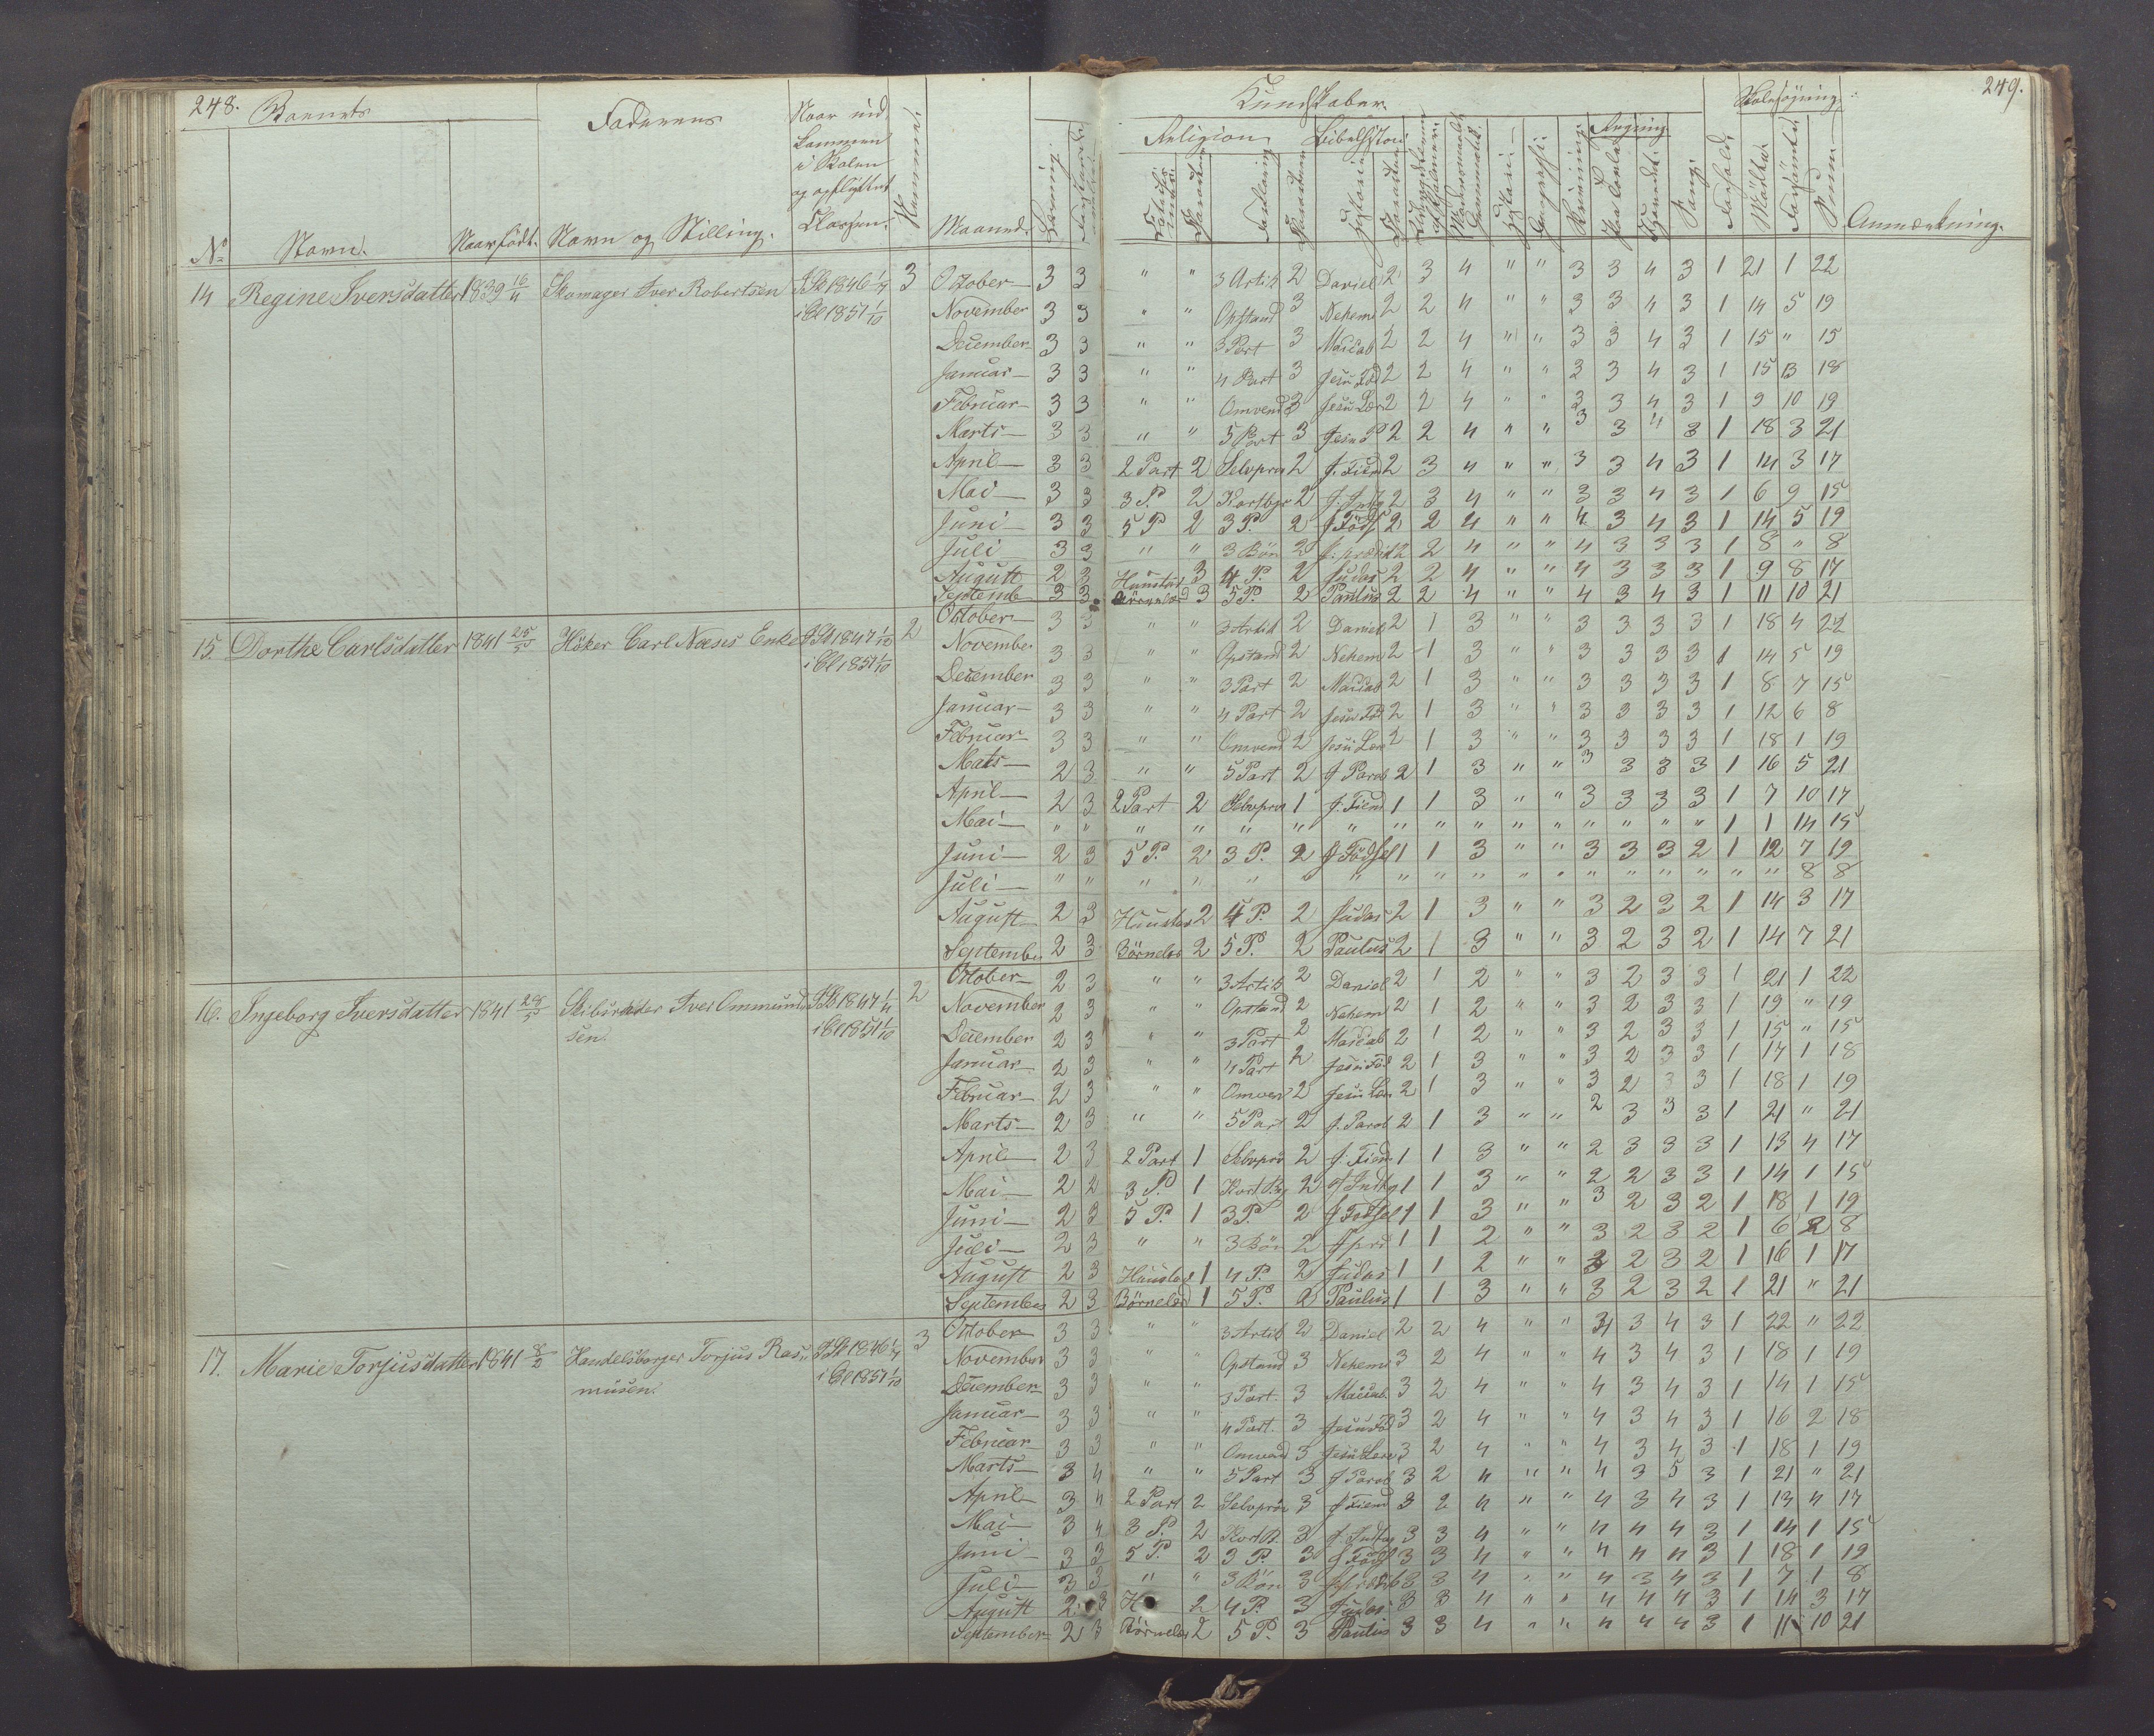 248. Barnets Faderens Naar ind- Kundskaber. Skolesøgning 249.
kommen Religion Bibelhistorie Regning
i Skolen
og opflyttet
No Navn. Naar født. Navn og Stilling. Classen. Nummer. Maaned. Læsning Forstand Historie Geographie Skrivning Paa Tavle Hovedet Sang Forhold Mødte Forsømte Sum Anmærkning.
14 Regine Iversdatter 1839 16/11 Skomager Iver Robertsen I Sk 1846 1/4 3 October 3 3 " " 3 Artik 2 Daniel 2 3 4 " " 3 3 4 3 1 21 1 22
i Cl 1851 1/10 November 3 3 " " Opstand 3 Nehem 2 2 4 " " 3 3 4 3 1 14 5 19
December 3 3 " " 3 Part 3 Maccab 2 2 4 " " 3 3 4 3 1 15 " 15
Januar 3 3 " " 4 Part 3 Jesu Fød 2 2 4 " " 3 3 4 3 1 15 13 18
Februar 3 3 " " Omvend 3 Jesu Lær 2 2 4 " " 3 3 4 3 1 9 10 19
Marts 3 3 " " 5 Part 3 Jesu P 2 2 4 " " 3 3 4 3 1 18 3 21
April 3 3 2 Part 2 Selvprø 2 J. Fiend 2 3 4 " " 3 3 4 3 1 14 3 17
Mai 3 3 3 P. 2 Kortbgr 2 J. Indtg 2 3 4 " " 3 3 4 3 1 6 9 15
Juni 3 3 5 P 2 3 P. 2 J Føds 2 2 4 " " 4 3 4 3 1 14 5 19
Juli 3 3 " " 3 Bøn 2 J. prædik 2 2 4 " " 4 3 3 3 1 8 " 8
August 2 3 Haustav 3 4 P. 2 Judas 2 2 4 " " 4 3 3 3 1 9 8 17
Septemb 3 3 Børnelær 3 5 P. 2 Paulus 2 2 4 " " 4 3 4 3 1 11 10 21
15. Dorthe Carlsdatter 1841 25/5 Høker Carl Næses Enke I Sk 1847 1/10 2 October 3 3 " " 3 Artik 2 Daniel 2 1 3 " " 3 3 3 3 1 18 4 22
i Cl 1851 1/10 November 3 3 " " Opstand 2 Nehem 2 1 3 " " 3 3 3 3 1 14 5 19
December 3 3 " " 3 Part 2 Maccab 2 1 3 " " 3 3 3 3 1 8 7 15
Januar 3 3 " " 4 Part 2 Jesu Fød 2 1 3 " " 3 3 3 3 1 12 6 8
Februar 3 3 " " Omvend 2 Jesu Lær 2 1 3 " " 3 3 3 3 1 18 1 19
Mats 2 3 " " 5 Part 2 J Parab 2 1 3 " " 3 3 3 3 1 16 5 21
April 2 3 2 Part 2 Selvprø 1 J. Fiend 1 1 3 " " 3 3 3 3 1 7 10 17
Mai " " " " " " " " " " " " " " " " 1 1 14 15
Juni 2 3 5 P. 2 3 P. 2 J Fødsel 1 1 3 " " 3 3 3 2 1 12 7 19
Juli " " " " " " " " " " " " " " " " " " 8 8
August 2 3 Haustav 2 4 P. 2 Judas 2 1 3 " " 3 2 3 2 1 14 3 17
September 2 3 Børnelær 2 5 P. 2 Paulus 2 1 3 " " 3 2 3 2 1 14 7 21
16. Ingeborg Iversdatter 1841 28/5 Skibsreder Iver Ommund- I Sk 1847 1/4 2 October 2 3 " " 3 Artik 2 Daniel 2 1 2 " " 3 2 3 3 1 21 1 22
sen. i Cl 1851 1/10 November 2 3 " " Opstand 2 Nehem 2 1 2 " " 3 2 3 3 1 19 " 19
December 2 3 " " 3 Part 2 Maccab 2 1 2 " " 3 2 3 3 1 15 " 15
Januar 2 3 " " 4 Part 2 Jesu Fød 2 1 3 " " 3 2 3 3 1 17 1 18
Februar 2 3 " " Omven 2 Jesu Lær 2 1 3 " " 3 2 3 3 1 18 1 19
Marts 2 3 " " 5 Part 2 J. Parab 2 1 3 " " 2 3 3 3 1 21 " 21
April 2 3 2 Part 1 Selvprø 2 J. Fiend 1 1 3 " " 2 3 3 3 1 13 4 17
Mai 2 2 3 P. 1 Kort Bg 2 J Indtg 1 1 3 " " 2 2 3 3 1 14 1 15
Juni 2 3 5 P. 1 3 P. 2 J Fødsel 1 1 3 " " 3 2 3 2 1 18 1 19
Juli 2 3 " " 3 Bøn 2 J præ 1 1 2 " " 3 2 3 2 1 6 2 8
August 2 3 Haustav 1 4 P. 2 Judas 1 1 2 " " 3 2 3 2 1 16 1 17
September 2 3 Børnelær 1 5 P. 2 Paulus 1 1 3 " " 3 2 3 2 1 21 " 21
17. Marie Torjusdatter 1841 8/2 Handelsborger Torjus Ras- I Sk 1846 1/4 3 October 3 3 " " 3 Artik 2 Daniel 2 2 4 " " 3 3 4 3 1 22 " 22
musen. i Cl 1851 1/10 November 3 3 " " Opstand 3 Nehem 3 2 4 " " 4 3 4 3 1 18 1 19
December 3 3 " " 3 Part. 3 Maccab 3 2 4 " " 4 3 4 3 1 14 1 15
Januar 3 3 " " 4 Part. 3 Jesu Fød 3 2 4 " " 4 3 4 3 1 16 2 18
Februar 3 3 " " Omvend 3 Jesu Lære 3 2 4 " " 4 3 4 3 1 18 1 19
Marts 3 4 " " 5 Part 3 J Parab 3 2 4 " " 4 3 5 3 1 21 " 21
April 3 4 2 Part 2 Selvprøv 3 J Fiend 3 2 4 " " 4 3 4 3 1 13 4 17
Mai 3 4 3 P. 2 Kort B. 3 J. Indtog 3 3 4 " " 4 4 4 3 1 14 1 15
Juni 3 3 5 P. 2 3 P. 3 J Føds 3 3 4 " " 4 4 4 3 1 18 1 19
Juli 3 3 " " 3 Bøn 3 J. prædik 3 3 4 " " 4 3 4 3 1 7 1 8
August 2 3 H 2 4 P. 3 Judas 3 3 4 " " 4 4 4 3 1 14 3 17
September 2 3 Børnelær 2 5 P. 3 Paulus 3 3 4 " " 4 4 4 3 1 11 10 21